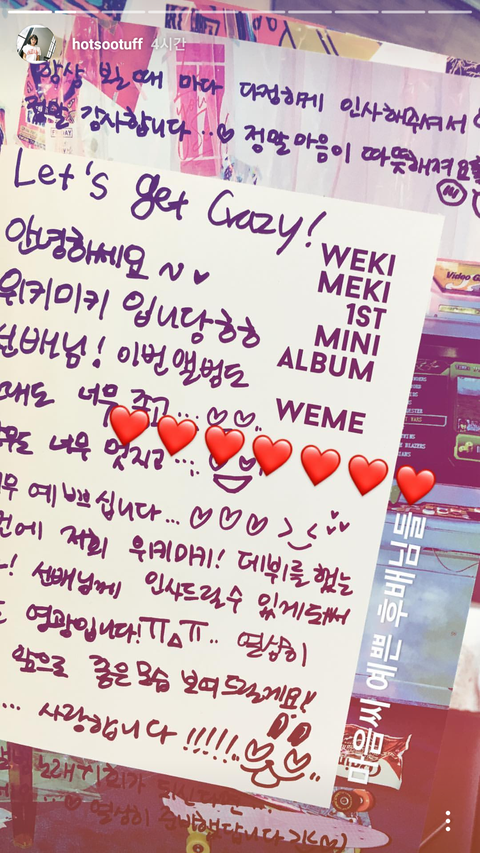 hotsootuff 4시간
항상 볼 때 마다 다정하게 인사해주셔서
정말 감사합니다...♡ 정말 마음이 따뜻해져요
Let's get Crazy!
안녕하세요 ~ ♥
위키미키 입니당ㅎㅎ
선배님! 이번 앨범도
너무 좋고...♡♡..
너무 멋지고...
예쁘십니다...♡♡♡
저희 위키미키! 데뷔를 했는
선배님께 인사드릴수 있게돼서
영광입니다!ㅠㅠ.. 열심히
앞으로 좋은 모습 보여드릴게요!
... 사랑합니다!!!!!..
WEKI
MEKI
1ST
MINI
ALBUM
WEME
❤️❤️❤️❤️❤️❤️❤️
마음씨 예쁜 후배님들
열심히 준비했답니다